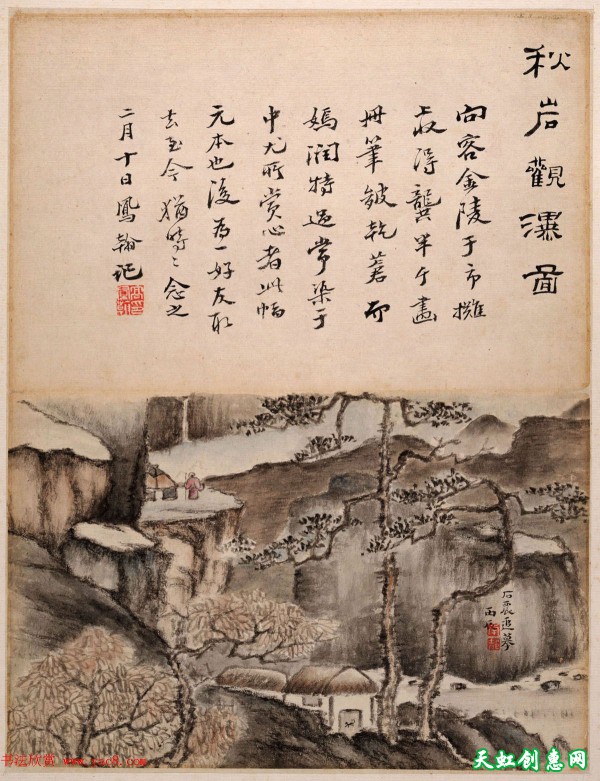 秋岩觀瀑圖
向客金陵于市攤
上收得龔半千畫
冊筆皴乾蒼而
嫣潤特過常染于
中尤所賞心者此幅
元本也後为一好友取
去至今猶時〻念之
二月十日鳳翰記
石農追摹
书法欣赏 www.yac8.com
天虹创惠网